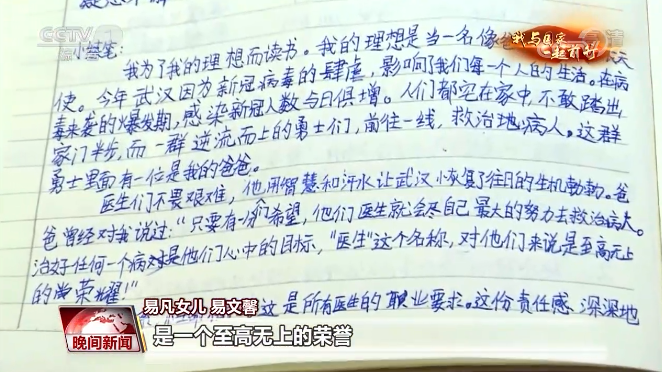 CCTV 1
我与国家
一起前行
小练笔：
我为了我的理想而读书。我的理想是当一名像
使。今年武汉因为新冠病毒的肆虐，影响了我们每一个人的生活。在病
毒来袭的爆发期，感染新冠人数与日俱增。人们都宅在家中，不敢踏出
家门半步，而一群逆流而上的勇士们，前往一线，救治地病人。这群
勇士里面有一位是我的爸爸。
医生们不畏艰难，他用智慧和汗水让武汉恢复了往日的生机勃勃。爸
爸曾经对我说过：“只要有一们希望，他们医生就会尽自己最大的努力去救治病人。
治好任何一个病对是他们心中的目标，“医生”这个名称，对他们来说是至高无上
的荣耀！”
这是所有医生的职业要求。这份责任感深深地
易凡女儿 易文馨
晚间新闻
是一个至高无上的荣誉